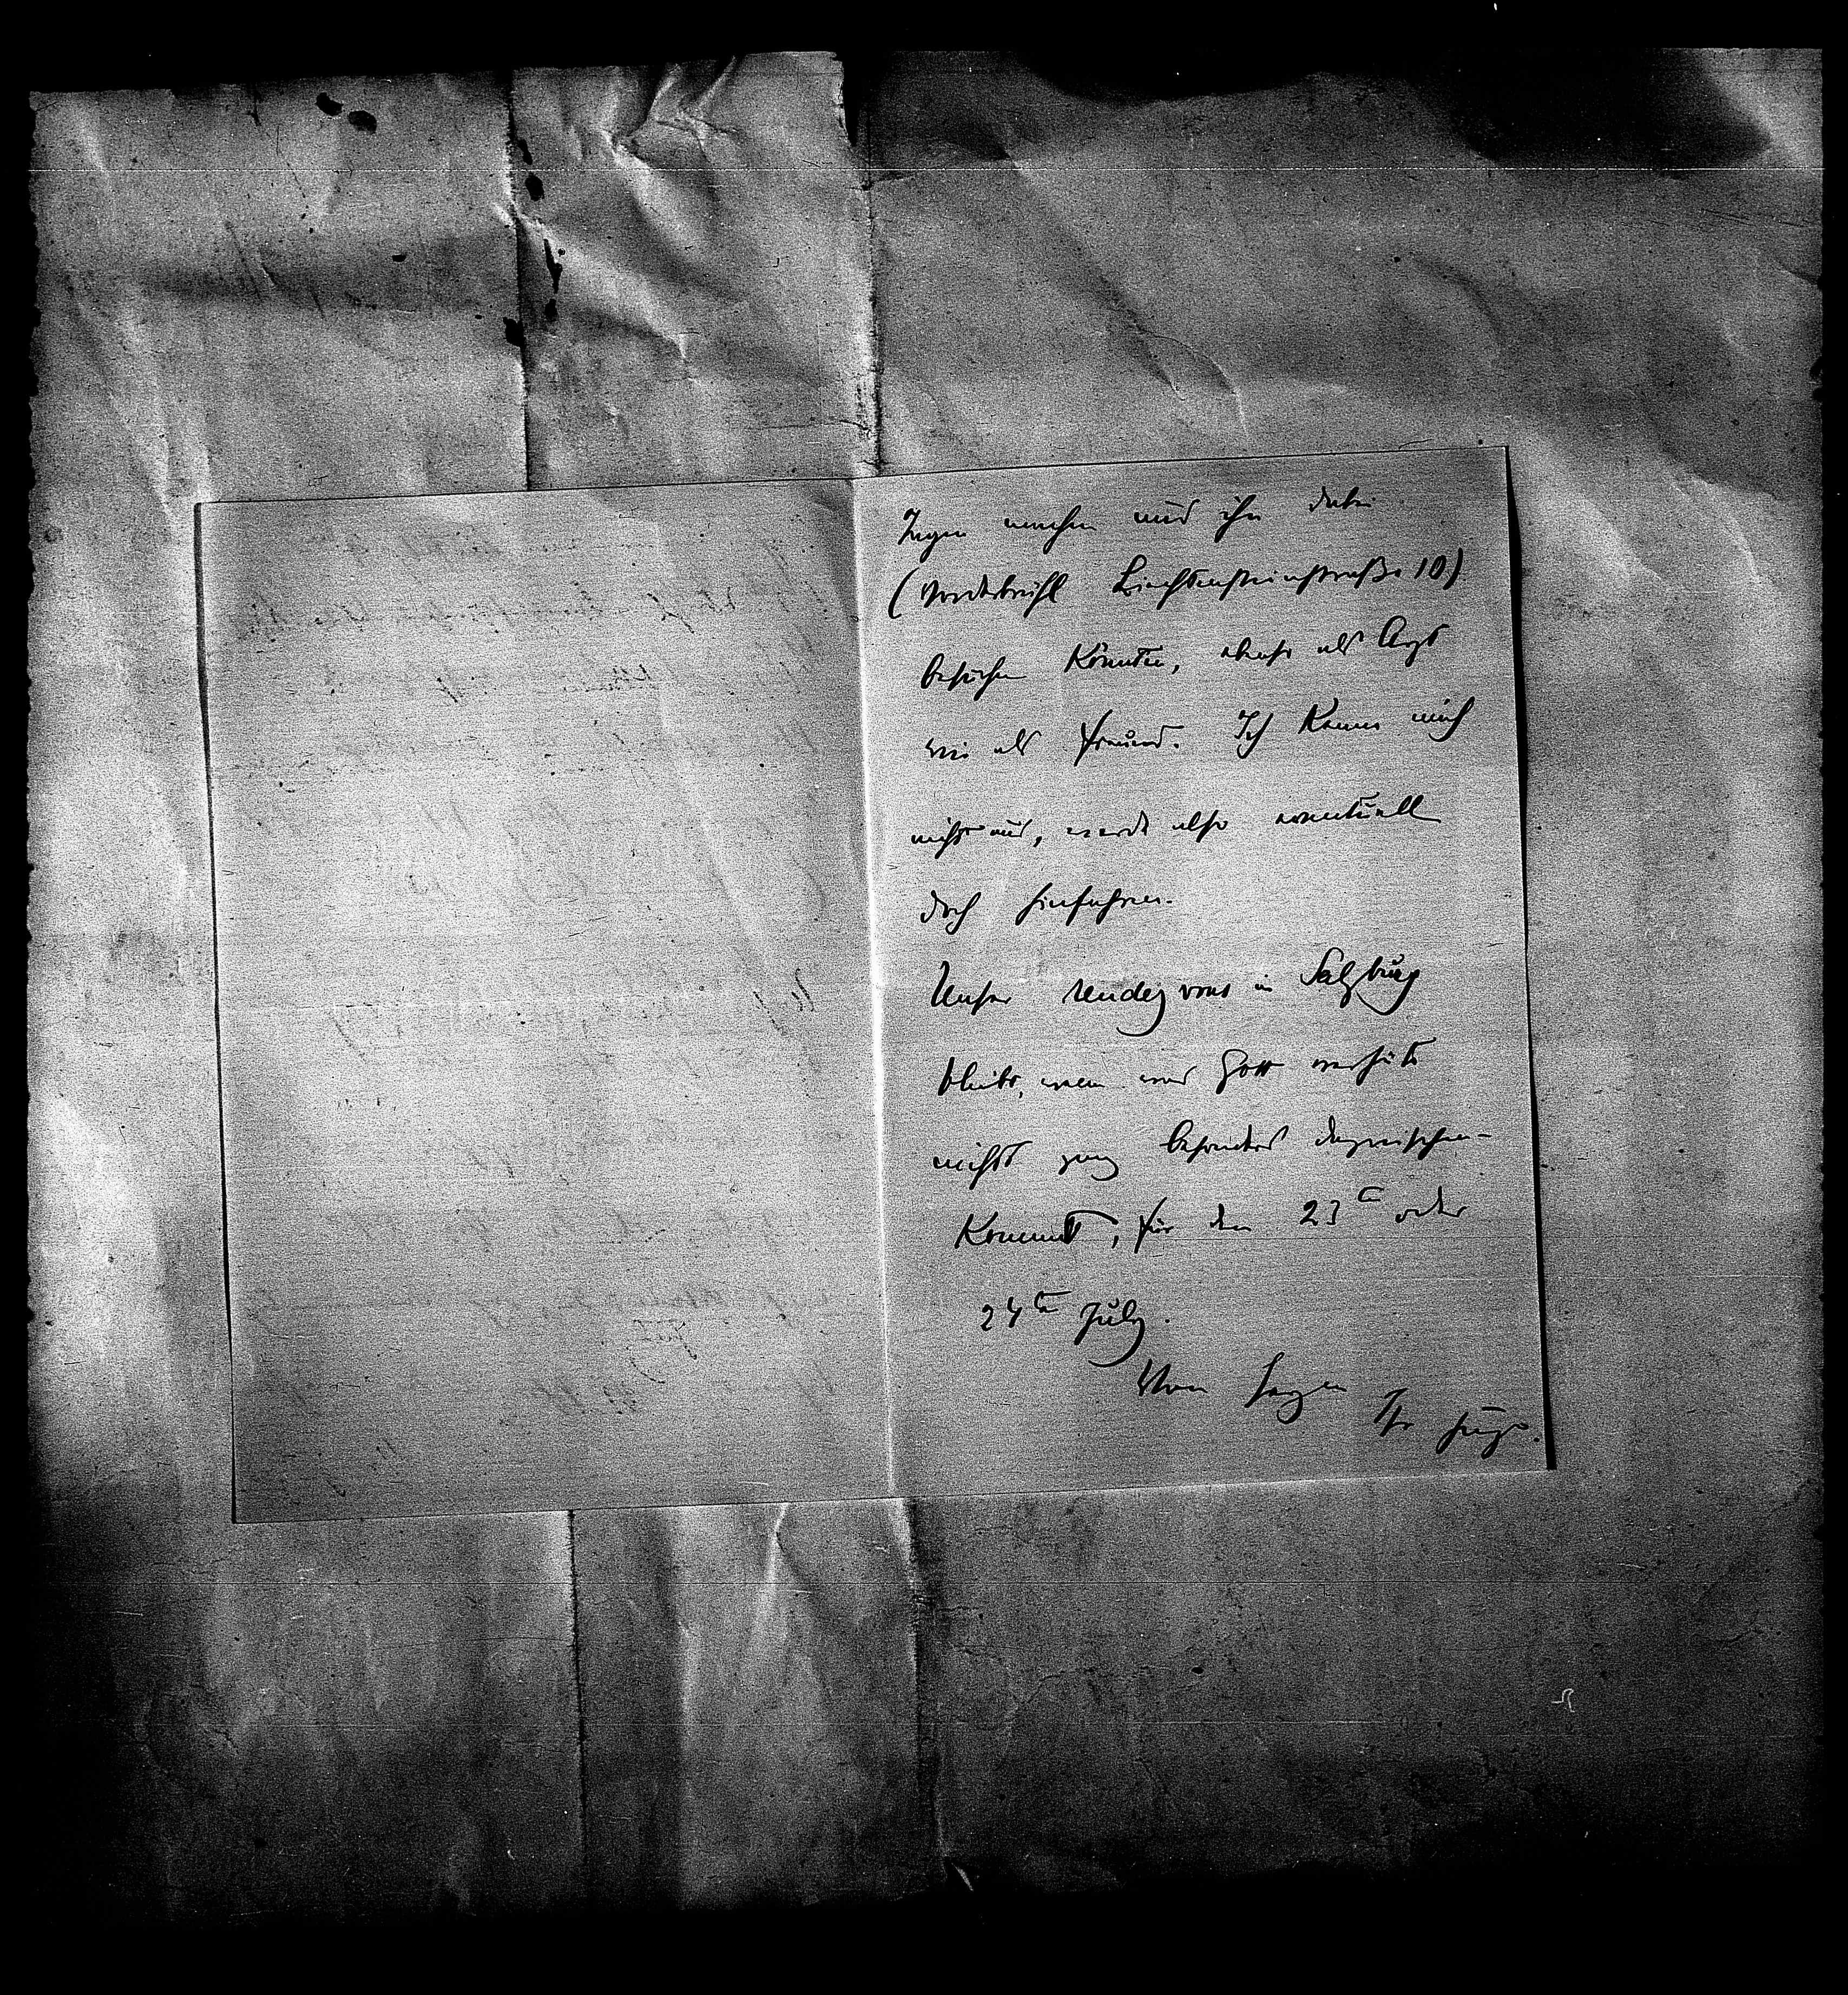 Tagen machen und ihn dabei
(Vorderbrühl Liechtensteinstraße 10)
besuchen könnten, ebenso als Arzt
wie als Freund. Ich kenne mich
nicht aus, werde also eventuell
doch hinfahren.
Unser Rendezvous in Salzburg
bleibt, wenn was Gott verhüte
nichts ganz besonders dazwischen-
kommt, für den 23ten oder
24ten July.
Von Herzen
Ihr Hugo.